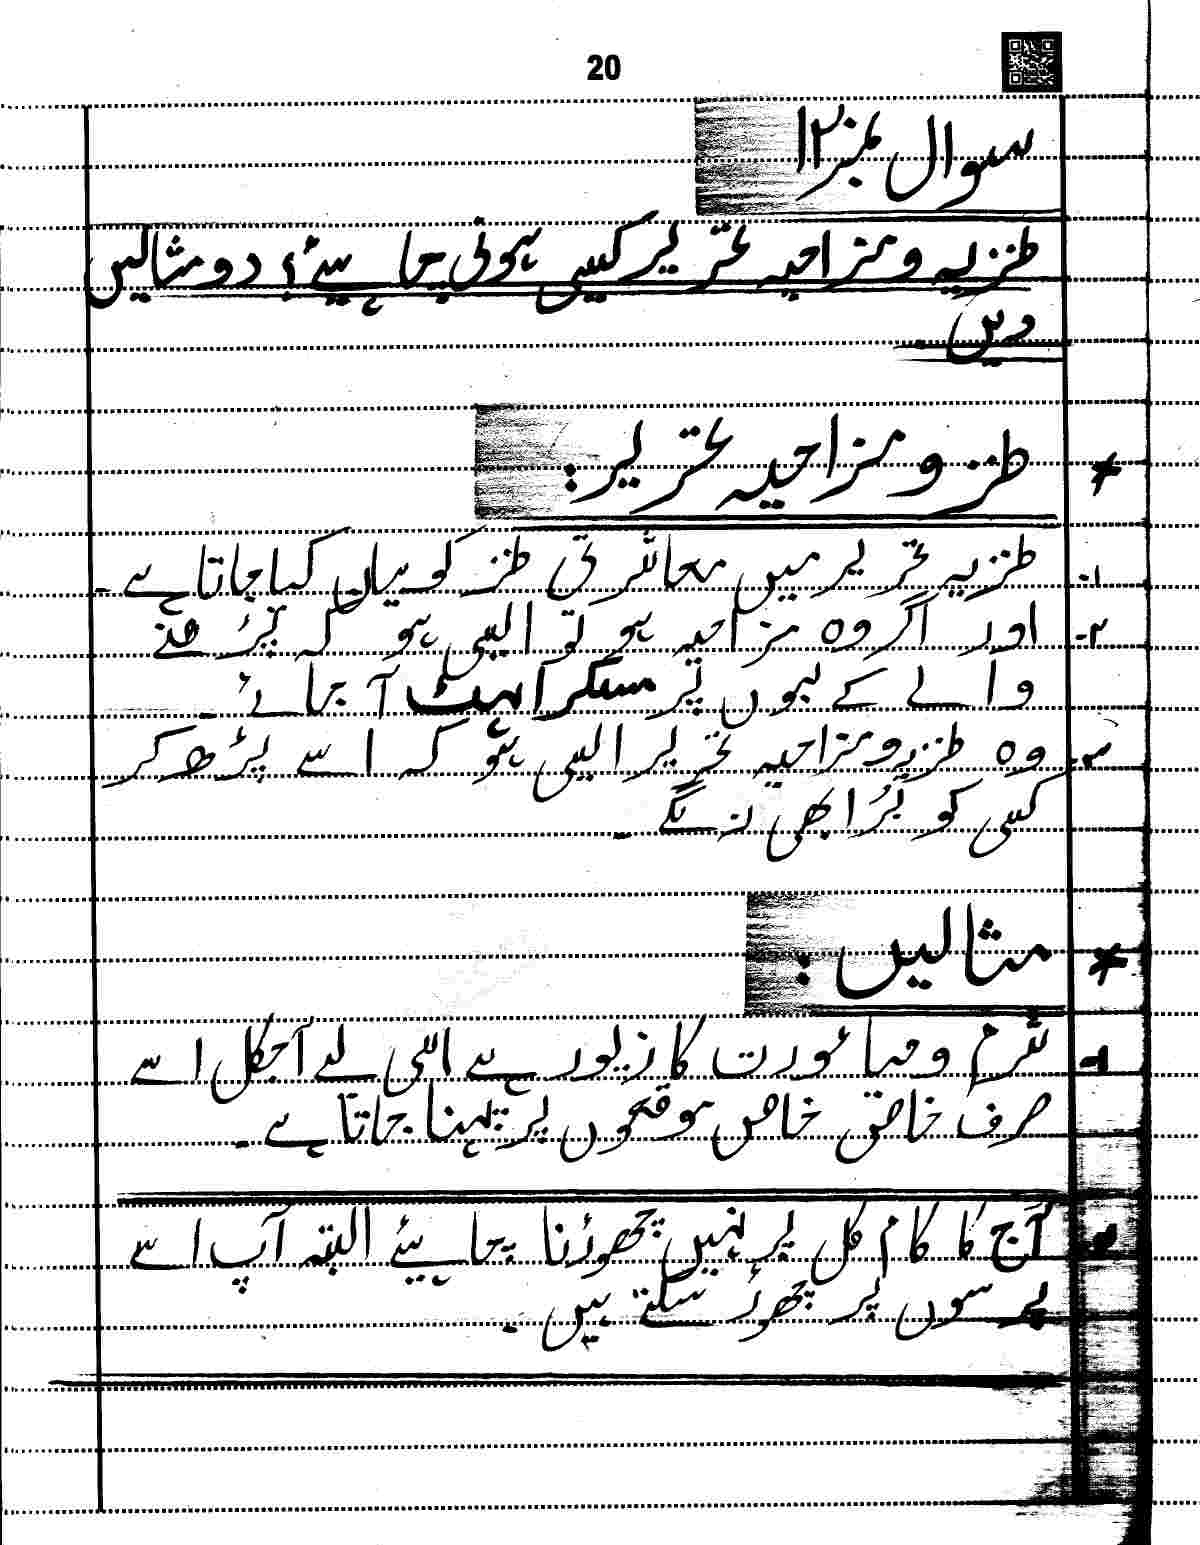 20
سوال نمبر ۱۲
طنزیہ و مزاحیہ تحریر کیسی ہونی چاہیئے؟ دو مثالیں
دیں۔
* طنز و مزاحیہ تحریر:
۱۔ طنزیہ تحریر میں معاشرتی طنز کو بیان کیا جاتا ہے۔
۲۔ اور اگر وہ مزاحیہ ہو تو ایسی ہو کہ پڑھنے
والے کے لبوں پر مسکراہٹ آ جائے۔
۳۔ وہ طنزیہ و مزاحیہ تحریر ایسی ہو کہ اسے پڑھ کر
کسی کو بُرا بھی نہ لگے۔
* مثالیں:
۱۔ شرم و حیا عورت کا زیور ہے اسی لے آجکل اسے
صرف خاص خاص موقعوں پر پہنا جاتا ہے۔
۲۔ آج کا کام کل پر نہیں چھوڑنا چاہیئے البتہ آپ اسے
پرسوں پر چھوڑ سکتے ہیں۔